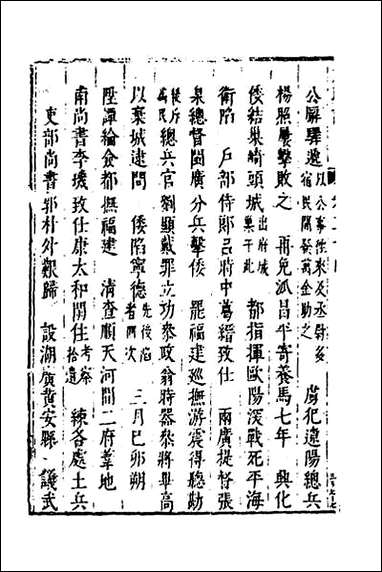 公廨驛遞以公事往來及丞尉多宿民間發萬金助之 虜犯遼陽總兵
楊照襲擊敗之 再免昌平寄養馬七年 興化
倭結巢崎頭城出府城巢于此 都指揮歐陽深戰死平海
衛陷 戶部侍郎呂時中葛縉致仕 兩廣提督張
臬總督閩廣分兵擊倭 罷福建巡撫游震得聽勘
後斥為民總兵官劉顯戴罪立功參政翁時器參將畢高
以棄城逮問 倭陷寧德先後陷者兩次 三月己卯朔
陞譚綸僉都撫福建 清查順天河間二府羣地
南尚書李璣致仕康太和閒住考察拾遺 練各處土兵
吏部尚書郭朴外艱歸 設湖廣黃安縣 議武